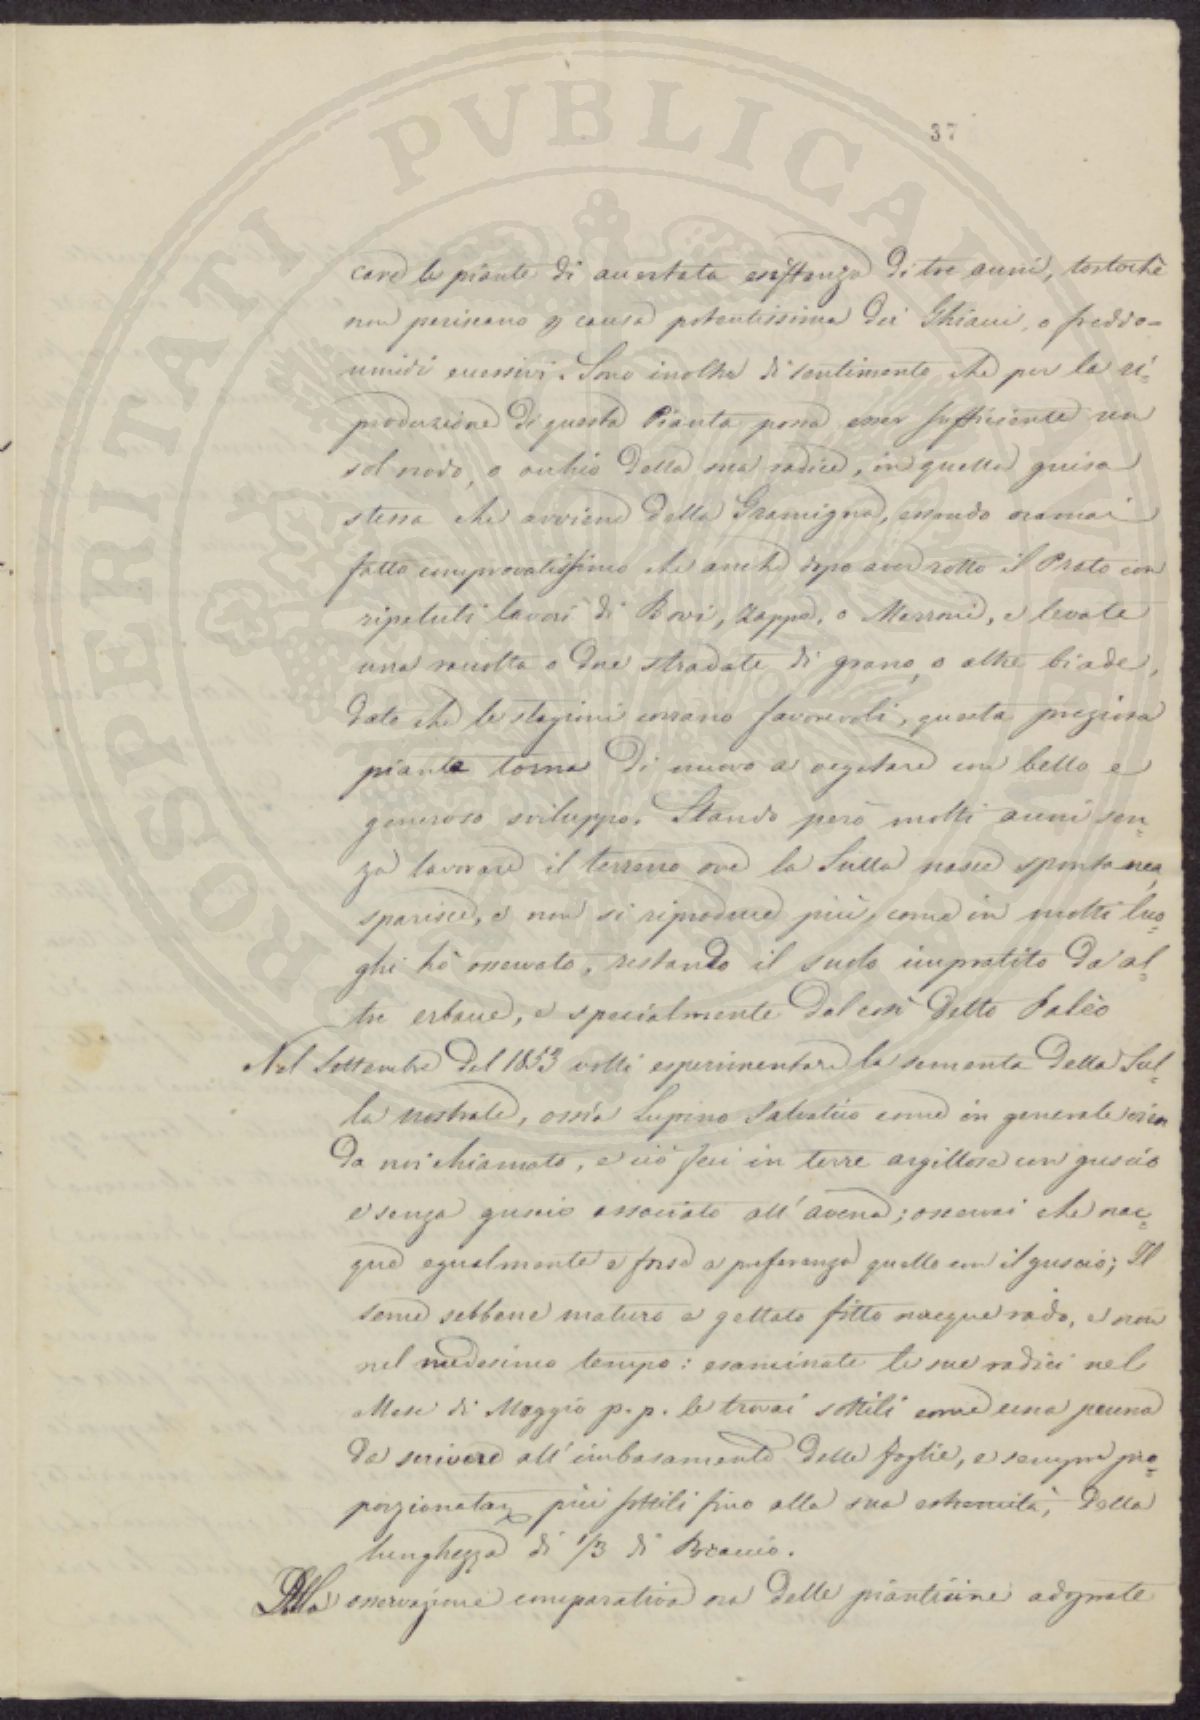 37
care le piante di accertata esistenza di tre anni, tostochè
non periscano p causa potentissima dei Ghiacci, o freddo=
umidi eccessivi. Sono inoltre di sentimento che per la ri=
produzione di questa Pianta possa esser sufficiente un
sol nodo, o occhio della sua radice, in quella guisa
stessa che avviene della Gramigna, essendo oramai
fatto comprovatissimo che anche dopo aver rotto il Prato con
ripetuti lavori di Bovi, Zappe, o Marrone, e levate
una raccolta o due stradate di grano, o altre biade,
dato che le stagioni corrano favorevoli, questa preziosa
pianta torna di nuovo a vegetare con bello e
generoso sviluppo. Stando però molti anni sen=
za lavorare il terreno ove la Sulla nasce spontanea,
sparisce, e non si riproduce più, come in molti luo=
ghi hò osservato, restando il suolo impratito da al=
tre erbacce, e specialmente dal così detto Paléo
Nel Settembre del 1853 volli esperimentare la sementa della Sul=
la nostrale, ossia Lupino Salvatico come in generale vien
da noi chiamato, e ciò feci in terre argillose con guscio
e senza guscio associato all'avena; osservai che nac=
que egualmente e forse a preferenza quello con il guscio; Il
seme sebbene maturo e gettato fitto nacque rado, e non
nel medesimo tempo: esaminate le sue radici nel
Mese di Maggio p.p. le trovai sottili come una penna
da scrivere all'imbasamento delle foglie, e sempre pro=
porzionata più sottili fino alla sua estremità, della
lunghezza di 1/3 di Braccio.
Dalla osservazione comparativa ora delle pianticine adognate
PROSPERITATI PVBLICAE